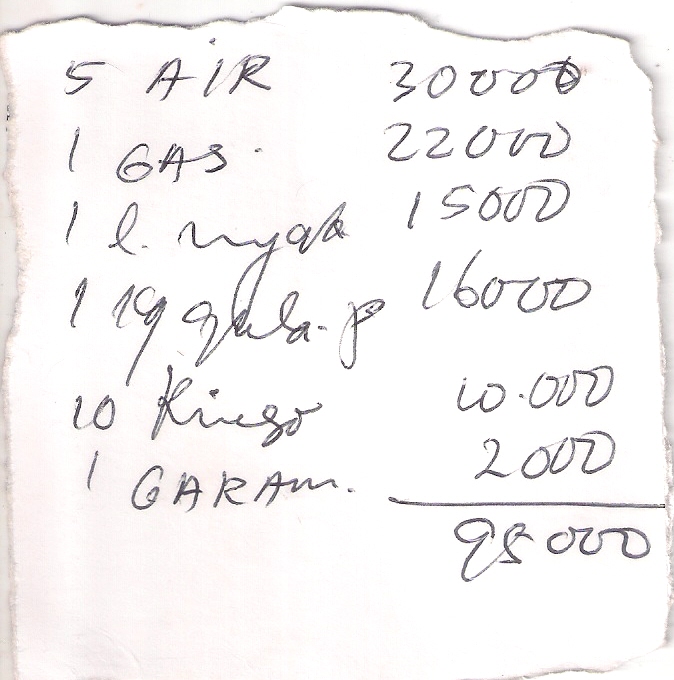 5 AIR 30000
1 GAS. 22000
1 l. myak 15000
1 kg gula. p 16000
10 Kingo 10.000
1 GARAM. 2000
95000